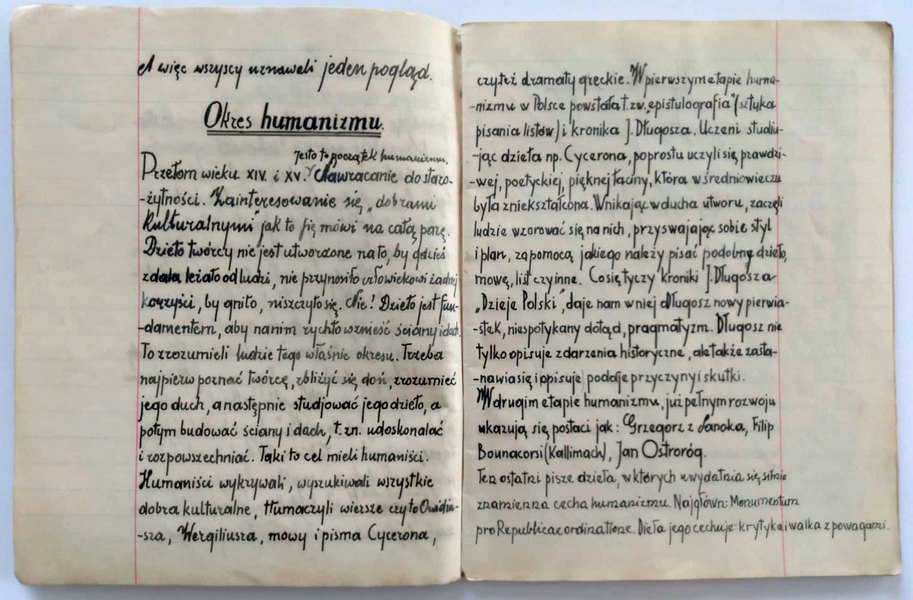 A więc wszyscy uznawali jeden pogląd.
Okres humanizmu.
Jest to początek humanizmu.
Przełom wieku XIV. i XV. Nawracanie do staro-
-żytności. Zainteresowanie się „dobrami
kulturalnymi" jak to się mówi na całą parę.
Dzieło twórcy nie jest utworzone na to, by gdzieś
zdala leżało od ludzi, nie przynosiło człowiekowi żadnej
korzyści, by gniło, niszczyło się. Nie! Dzieło jest fun-
-damentem, aby na nim rychło wznieść ściany i dach.
To zrozumieli ludzie tego właśnie okresu. Trzeba
najpierw poznać twórcę, zbliżyć się doń, zrozumieć
jego duch, a następnie studjować jego dzieło, a
potym budować ściany i dach, t.zn. udoskonalać
i rozpowszechniać. Taki to cel mieli humaniści.
Humaniści wykrywali, wyszukiwali wszystkie
dobra kulturalne, tłumaczyli wiersze czy to Owidiu-
-sza, Wergiliusza, mowy i pisma Cycerona,
czyteż dramaty greckie. W pierwszym etapie huma-
-nizmu w Polsce powstała t.zw. „epistulografia" (sztyka
pisania listów) i kronika J. Długosza. Uczeni studiu-
-jąc dzieła np. Cycerona, poprostu uczyli się prawdzi-
-wej, poetyckiej, pięknej łaciny, która w średniowieczu
była zniekształcona. Wnikając w ducha utworu, zaczęli
ludzie wzorować się na nich, przyswajając sobie styl
i plan, za pomocą jakiego należy pisać podobne dzieło,
mowę, list czy inne. Co się tyczy kroniki J. Długosza-
„Dzieje Polski", daje nam w niej Długosz nowy pierwia-
-stek, niespotykany dotąd, pragmatyzm. Długosz nie
tylko opisuje zdarzenia historyczne, ale także zasta-
-nawia się i opisuje podaje przyczyny i skutki.
W drugim etapie humanizmu, już pełnym rozwoju
ukazują się postaci jak: Grzegorz z Sanoka, Filip
Bounacorsi (Kallimach), Jan Ostroróg.
Ten ostatni pisze dzieła, w których uwydatnia się silnie
znamienna cecha humanizmu. Najgłówn: Monumentum
pro Republicae ordinatione. Dieła jego cechuje: krytyka i walka z powagami.